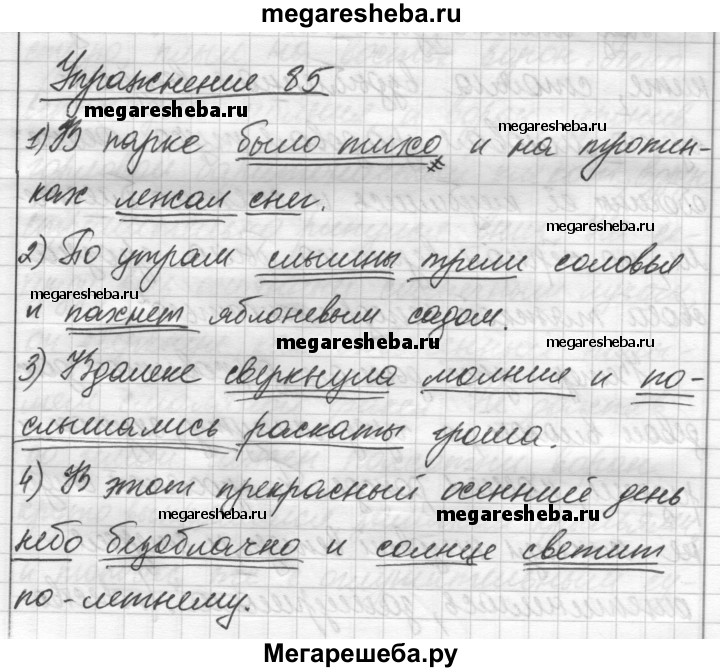 megaresheba.ru
Упражнение 85
megaresheba.ru
megaresheba.ru
1) В парке было тихо и на тропин-
ках лежал снег.
megaresheba.ru
2) По утрам слышны трели соловья
megaresheba.ru
megaresheba.ru
и пахнет яблоневым садом.
megaresheba.ru
megaresheba.ru
3) Вдалеке сверкнула молния и по-
слышались раскаты грома.
4) В этот прекрасный осенний день
megaresheba.ru
megaresheba.ru
небо безоблачно и солнце светит
по-летнему.
Мегарешеба.ру